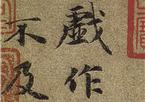 戲作
不及